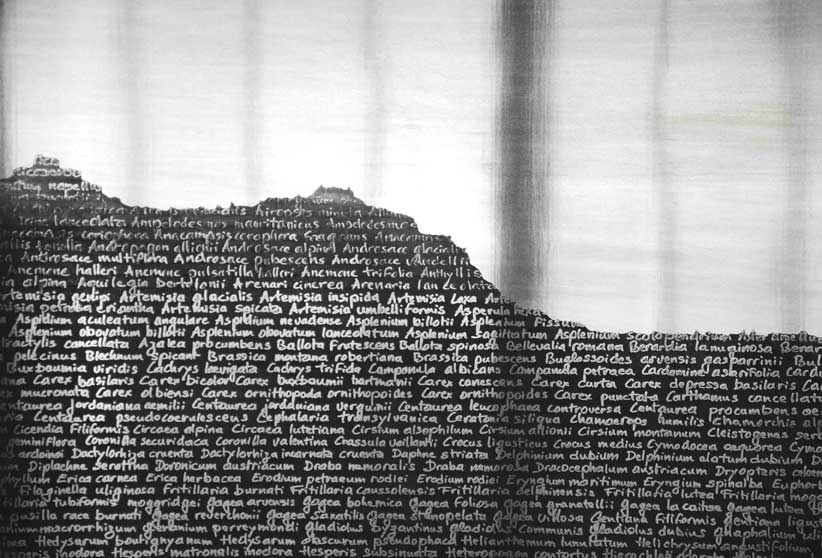 napellus
glacialis Airensis
lanceolata Ampelodesmos mauritanicus Ampelodesmos
coriophora Anacamptis coriophora fragrans Anacamptis
tenella Andropogon allionii Androsace alpina Androsace glacialis
Antirosace multiflora Androsace pubescens Androsace vandellii
Anemone halleri Anemone pulsatilla halleri Anemone trifolia Anthyllis
alpina Aquilegia bertolonii Arenari cinerea Arenaria lanceolata
Artemisia genipi Artemisia glacialis Artemisia insipida Artemisia laxa
petrosa eriantha Artemisia spicata Artemisia umbelliformis Asperula hexa
Aspidium aculeatum angulare Aspidium nevadense Asplenium billotii Asplenium Fissum
Asplenium obovatum billotii Asplenium obovatum lanceolatum Asplenium Sagittatum Asplenium scolopendrium
cancellata Azalea procumbens Ballota frutescens Ballota spinosa Bellevalia romana Berardia lanuginosa
pelecinus Blechnum spicant Brassica montana robertiana Brassica pubescens Buglossoides arvensis gasparrinii
Buxbaumia viridis Cachrys laevigata Cachrys trifida Campanula albicans Campanula petraea Cardamine asarifolia
Carex basilaris Carex bicolor Carex buxbaumii hartmanii Carex canescens Carex curta Carex depressa basilaris
mucronata Carex olbiensi Carex ornithopoda ornithopoides Carex ornithopoides Carex punctata Carthamus cancellatus
Centaurea jordaniana aemilii Centaurea jordaniana verguinii Centaurea leucophaea controversa Centaurea procumbens
Centaurea pseudocoerulescens Cephalaria transylvanica Ceratonia siliqua Chamaerops humilis Chamorchis
Cicendia filiformis Circaea alpina Circaea lutetiana Cirsium alsophilum Cirsium allionii Cirsium montanum Cleistogenes
Coronilla securidaca Coronilla valentina Crassula vaillantii Crocus ligusticus Crocus medius Cymodocea aequorea
Dactylorhiza cruenta Dactylorhiza incarnata cruenta Daphne striata Delphinium dubium Delphinium elatum dubium
Diplachne Serotina Doronicum austriacum Draba nemoralis Draba nemorosa Dracocephalum austriacum Dryopteris
Erica carnea Erica herbacea Erodium petraeum rodiei Erodium rodiei Eryngium maritimum Eryngium spinalba
Filaginella uliginosa Fritillaria burnati Fritillaria caussolensis Fritillaria delphinensis Fritillaria lutea Fritillaria
tubiformis moggridgei gagea arvensis gagea bohemica gagea foliosa gagea granatellii gagea lacaitae gagea lutea
burnati gagea reverchonii gagea saxatilis gagea stenopetala gagea villosa Gentiana filiformis gentiana
macrorrhizum geranium perreymondii gladiolus byzantinus gladiolus communis gladiolus dubius gnaphalium
Hedysarum boutignyanum Hedysarum obscurum pseudophaca Helianthemum lunulatum Helichrysum angustifolium
inodora Hesperis matronalis inodora Hesperis subsinuata Heteropogon contortus